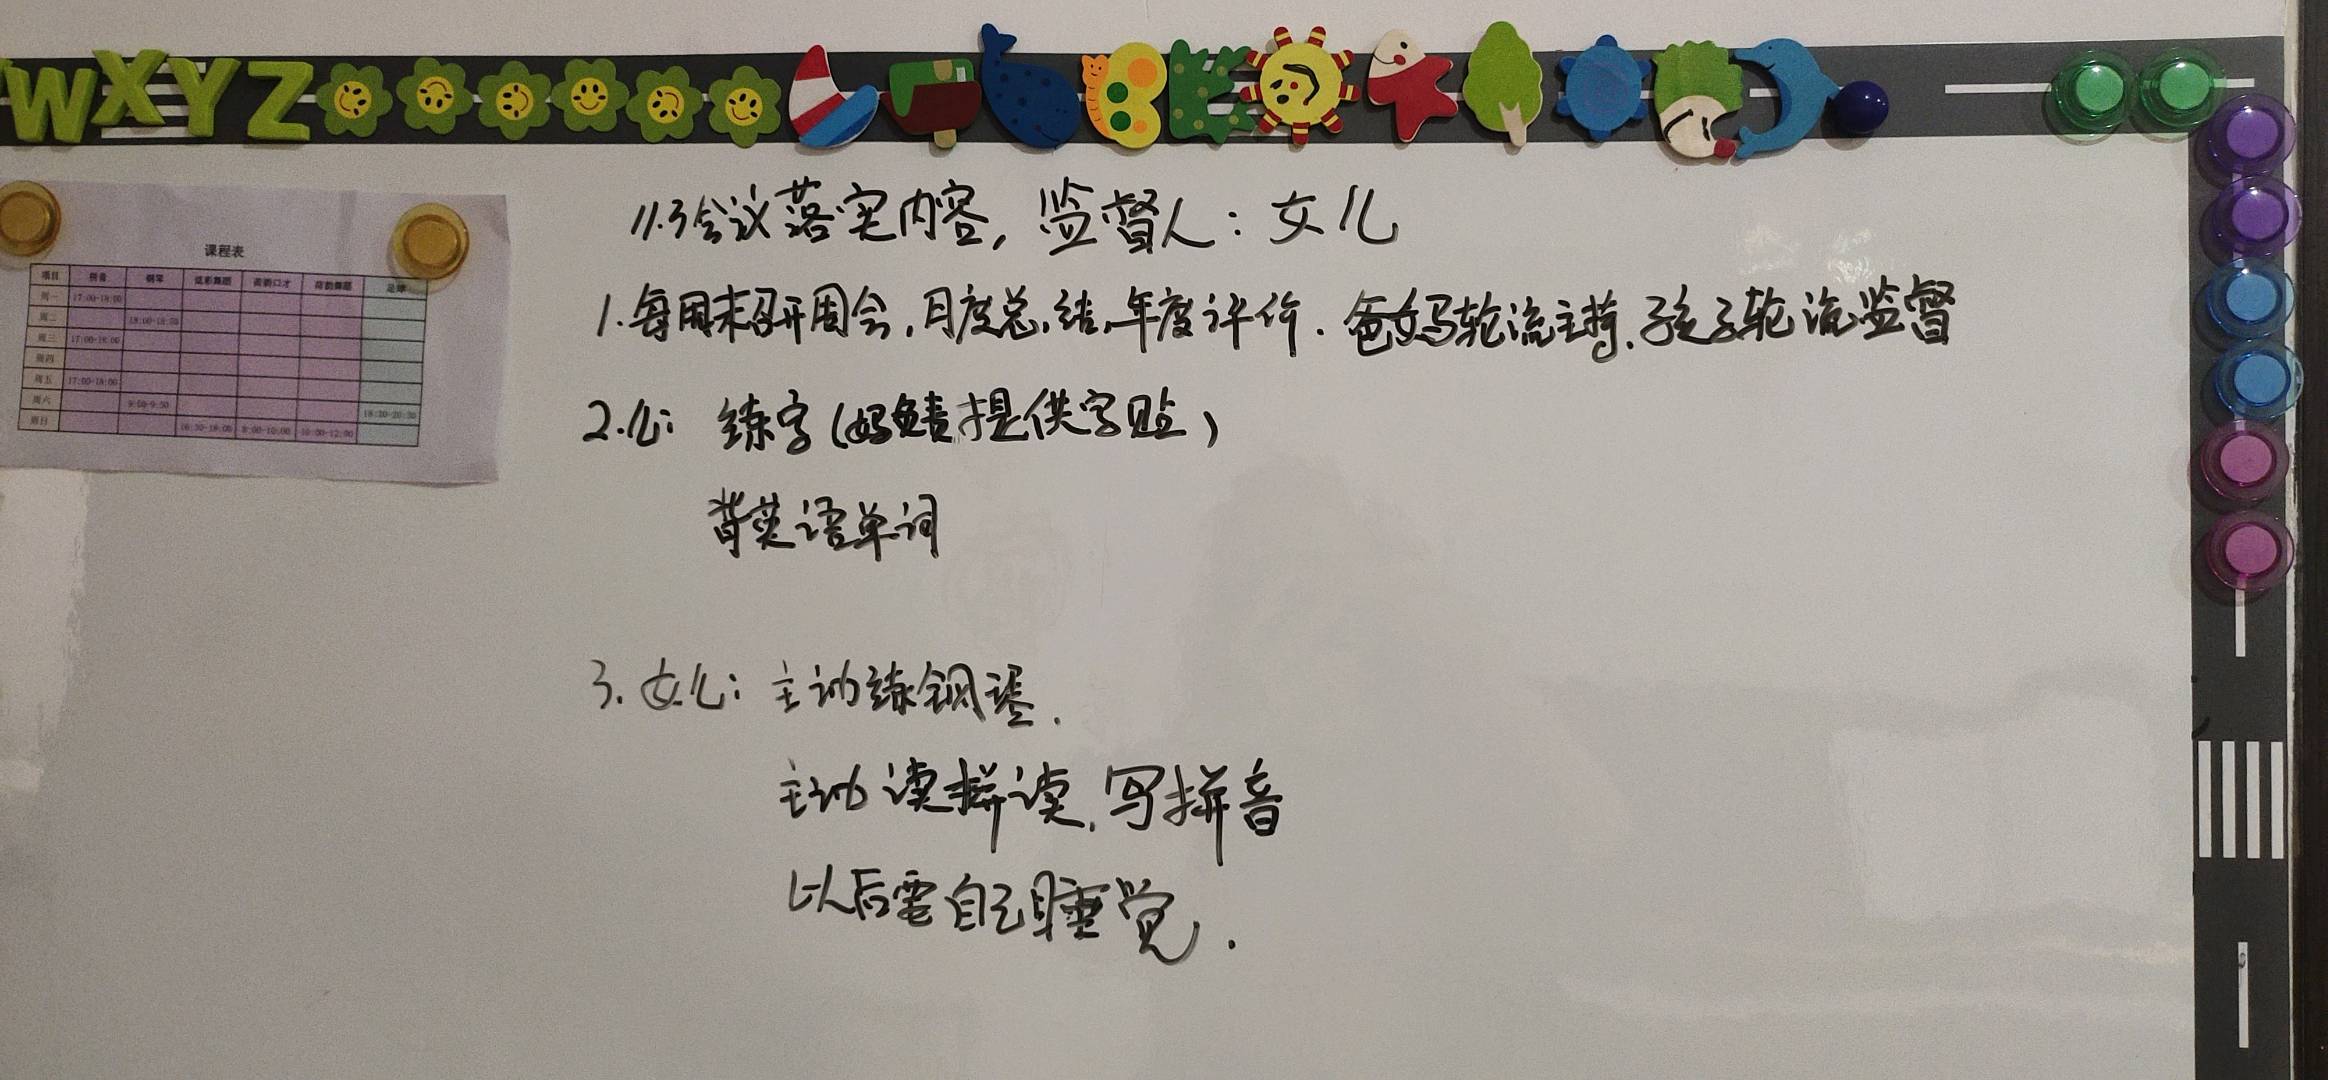 WXYZ
课程表
项目 拼音 钢琴 炫彩舞蹈 荷韵口才 荷韵舞蹈 足球
周一 17:00-18:00
周二 18:00-18:50
周三 17:00-18:00
周四
周五 17:00-18:00
周六 9:00-9:50 18:30-20:30
周日 16:30-18:00 8:00-10:00 10:00-12:00
11.3会议落实内容,监督人:女儿
1.每周末召开周会,月度总结,年度评价.爸妈轮流主持,孩子轮流监督
2.儿: 练字(妈负责提供字贴)
背英语单词
3.女儿: 主动练钢琴.
主动读拼读,写拼音
以后要自己睡觉.